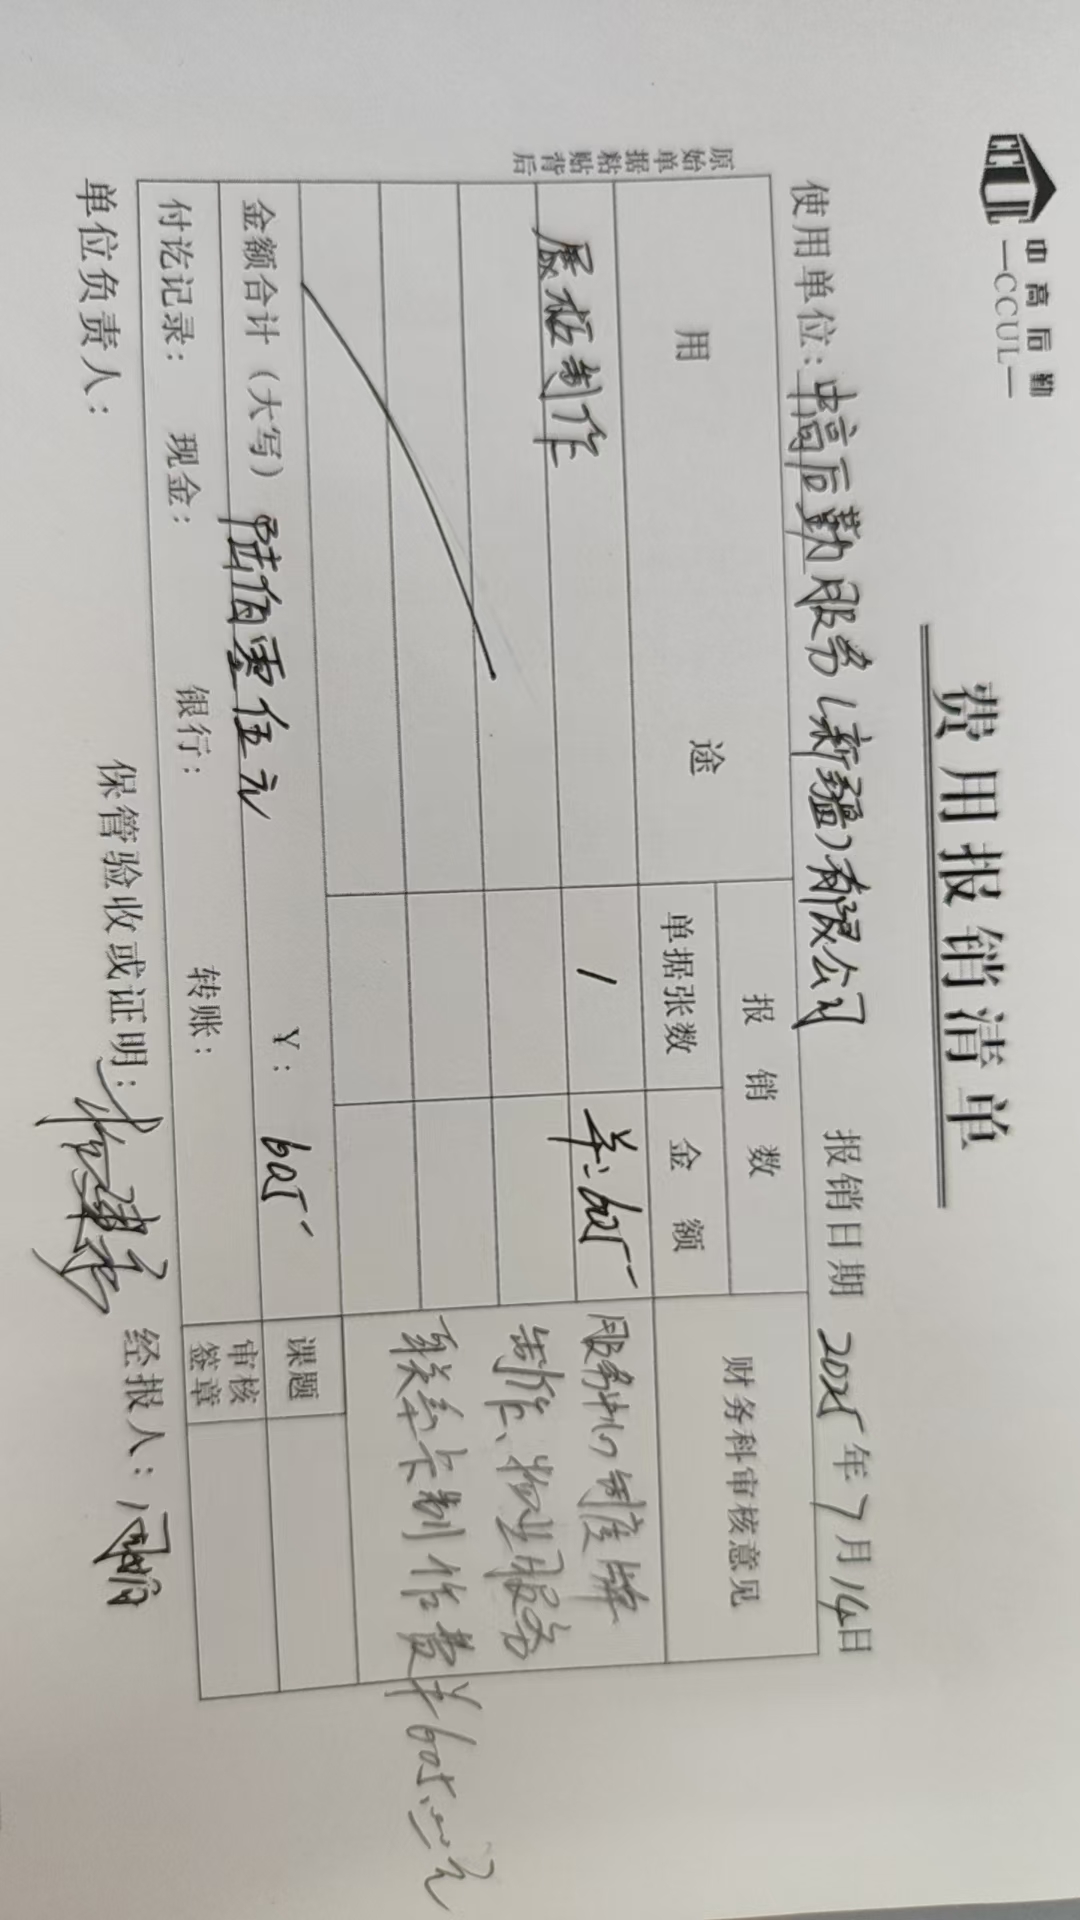 中高后勤
—CCUL—
费用报销清单
使用单位：中高后勤服务（新疆）有限公司 报销日期 2025年7月14日
原始单据粘贴背后
用途 报销数 财务科审核意见
单据张数 金额
展板制作 1 ¥：605-
服务中心制度牌
制作、物业服务
联系卡制作费¥605.00元
金额合计（大写） 陆佰零伍元 ¥：605- 课题
付讫记录： 现金： 银行： 转账： 审核签章
单位负责人： 保管验收或证明： 经报人：